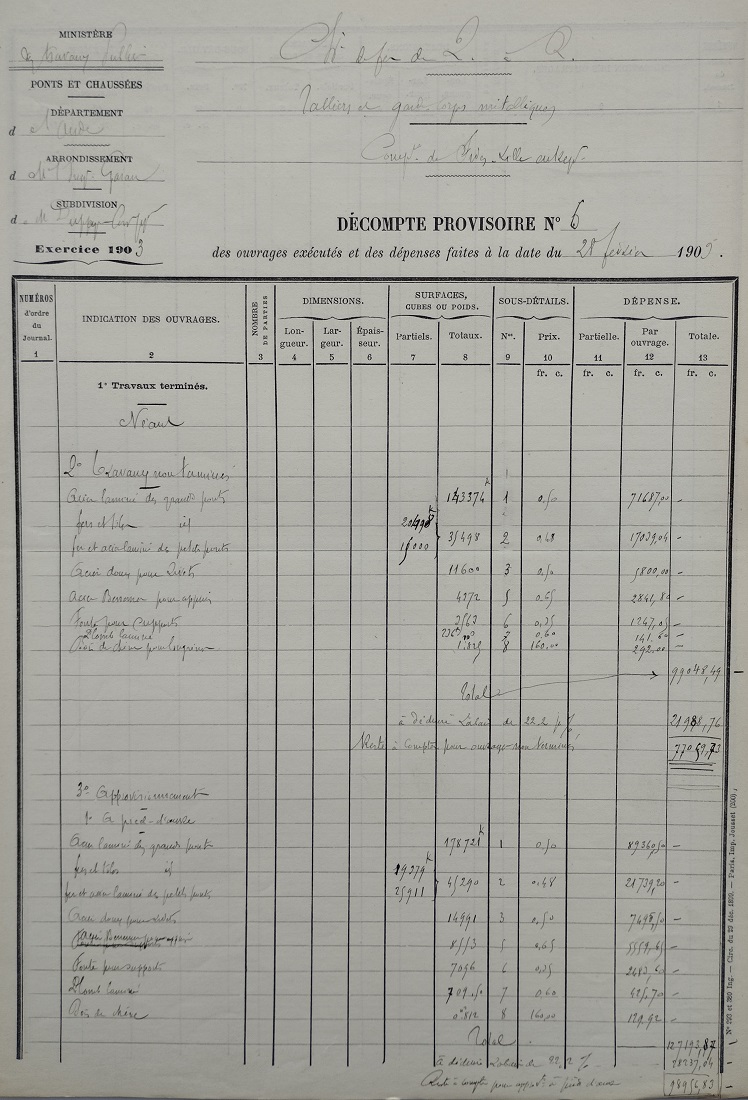 MINISTÈRE
des travaux Publics
PONTS ET CHAUSSÉES
DÉPARTEMENT
d
ARRONDISSEMENT
d
SUBDIVISION
d
Exercice 1903
Ch. de fer de L. à R.
Tabliers et garde corps métalliques
Comp. de Fives-Lille
DÉCOMPTE PROVISOIRE N° 6
des ouvrages exécutés et des dépenses faites à la date du 28 février 1905.
NUMÉROS d'ordre du Journal. INDICATION DES OUVRAGES. NOMBRE DE PARTIES DIMENSIONS. SURFACES, CUBES OU POIDS. SOUS-DÉTAILS. DÉPENSE.
Longueur. Largeur. Épaisseur. Partiels. Totaux. Nos. Prix. Partielle. Par ouvrage. Totale.
1 2 3 4 5 6 7 8 9 10 11 12 13
fr. c. fr. c. fr. c. fr. c.
1° Travaux terminés.
Néant
2° Travaux non terminés
Acier laminé des grands ponts 143374k 1 0,50 71687,00 -
fers et tôles id 20498k
fer et acier laminé des petits ponts 15000 35498 2 0,48 17039,04 -
Acier doux pour Rivets 11600 3 0,50 5800,00 -
Acier Bessemer pour appuis 4372 5 0,65 2841,80 -
Fonte pour supports 3563 6 0,35 1247,05 -
Plomb laminé 236k 7 0,60 141,60 -
Bois de chêne pour longrines 1.825 8 160,00 292,00 -
Total 99048,49
à déduire Rabais de 22.2 p % 21988,76
Reste à compter pour ouvrages non terminés 77059,73
3° Approvisionnements
1° A pied-d'œuvre
Acier laminé des grands ponts 178721k 1 0,50 89360,50 -
fers et tôles id 19379k
fer et acier laminé des petits ponts 25911 45290 2 0,48 21739,20 -
Acier doux pour rivets 14991 3 0,50 7495,50 -
Acier Bessemer pour appuis 8553 5 0,65 5559,45 -
Fonte pour supports 7096 6 0,35 2483,60 -
Plomb laminé 709,50 7 0,60 425,70 -
Bois de chêne 0,812 8 160,00 129,92 -
Total 127193,87
A déduire Rabais de 22,2 % 28237,04
Reste à compter pour appro. à pied d'œuvre 98956,83
N° 293 et 360 Ing. — Circ. du 29 déc. 1899. — Paris, Imp. Jousset (200)